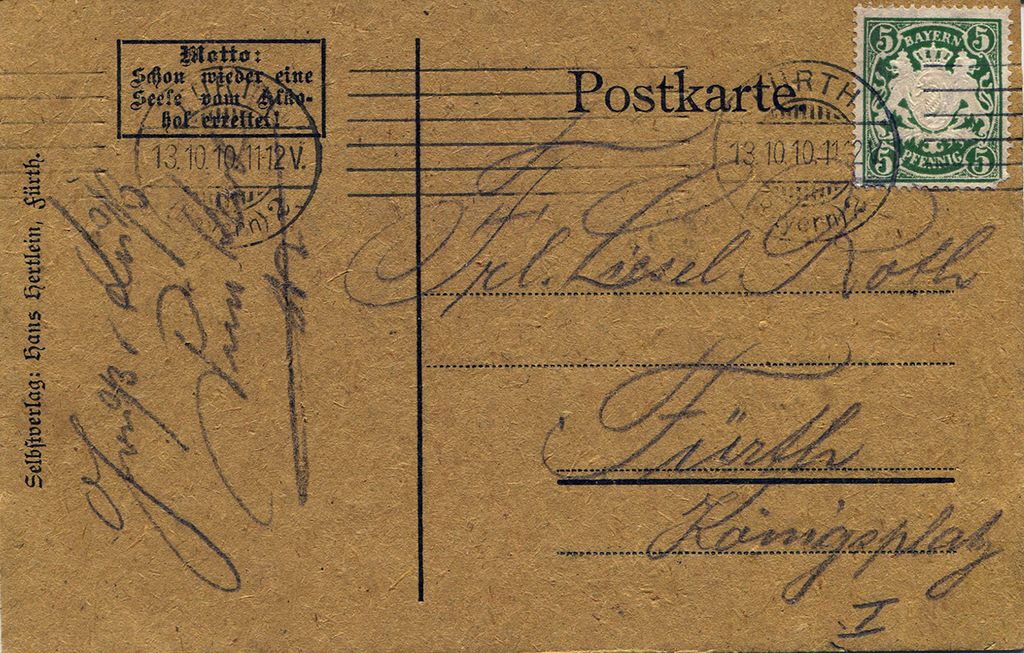 Motto:
Schon wieder eine
Seele vom Alko-
hol errettet!
Postkarte.
5 BAYERN 5
5 PFENNIG 5
FÜRTH
13.10.10.11-12V.
(Bayern) 2
FÜRTH.
13.10.10.11-12V.
(Bayern) 2
Selbstverlag: Hans Hertlein, Fürth.
Frl. Liesel Roth
Fürth
Königsplatz
I